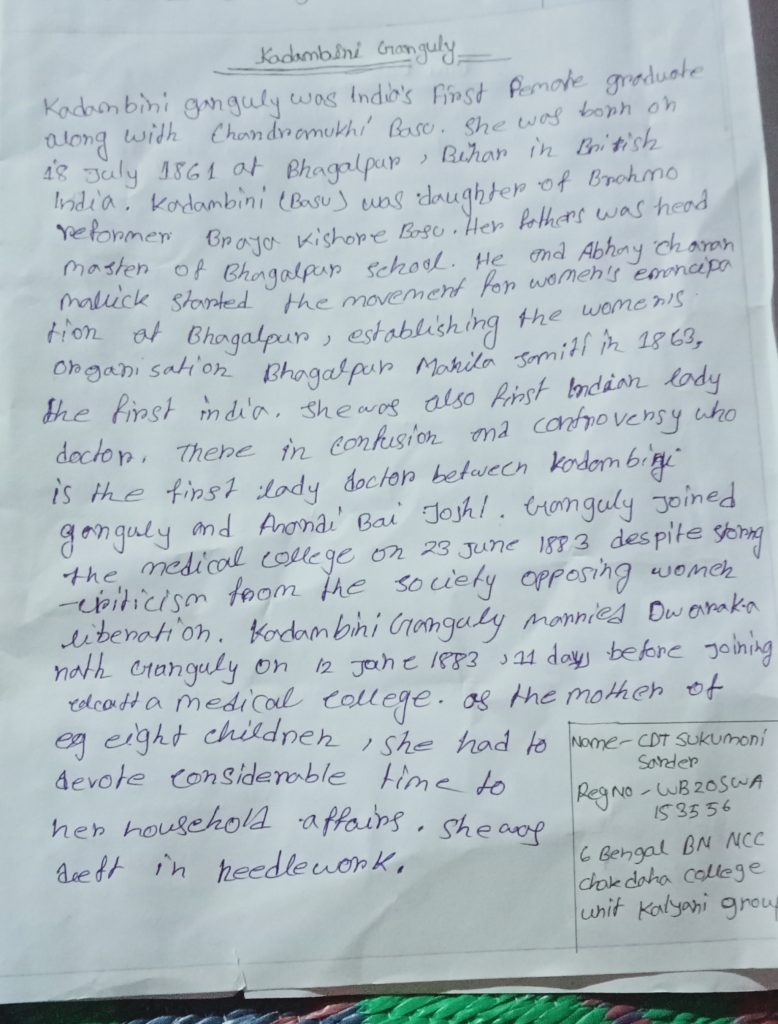 Kadambini Ganguly
Kadambini ganguly was India's First Female graduate
along with Chandramukhi Basu. She was born on
18 July 1861 at Bhagalpur, Bihar in British
India. Kadambini (Basu) was daughter of Brahmo
reformer Braja Kishore Basu. Her fathers was head
master of Bhagalpur school. He and Abhay charan
mallick started the movement for women's emancipa
tion at Bhagalpur, establishing the women's
organisation Bhagalpur Mahila Samiti in 1863,
the first india. She was also first Indian lady
doctor. There in confusion and controversy who
is the first lady doctor between kadambini
ganguly and Anandi Bai Joshi. Ganguly joined
the medical college on 23 June 1883 despite strong
criticism from the society opposing women
liberation. Kadambini Ganguly married Dwaraka
nath Ganguly on 12 June 1883, 11 days before joining
calcatta medical college. as the mother of
eg eight children, she had to
devote considerable time to
her household affairs. She was
deeft in needlework.
Name- CDT SUKUMONI
Sarder
Reg No - WB20SWA
153556
6 Bengal BN NCC
chakdaha college
unit Kalyani group